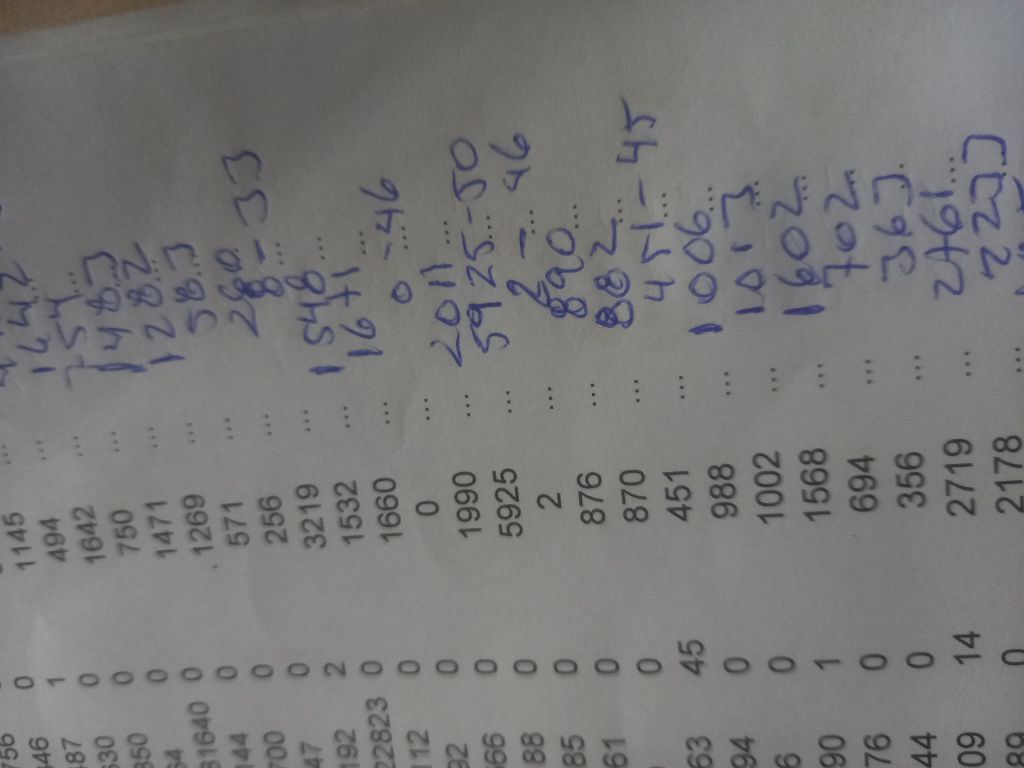 487 1 1145 ...
630 0 494 ...
850 0 1642 ... 1642 ...
64 0 750 ... 754 ...
31640 0 1471 ... 1483 ...
144 0 1269 ... 1282 ...
700 0 571 ... 583 ...
47 0 256 ... 260
192 2 3219 ... 8-33 ...
22823 0 1532 ... 1548 ...
112 0 1660 ... 1671 ...
92 0 0 ... 0-46 ...
566 0 1990 ... 2011 ...
88 0 5925 ... 5925-50 ...
85 0 2 ... 2-46 ...
61 0 876 ... 890 ...
0 870 ... 882 ...
63 45 451 ... 451-45 ...
94 0 988 ... 1006 ...
6 0 1002 ... 1013 ...
90 1 1568 ... 1602 ...
76 0 694 ... 702 ...
44 0 356 ... 363 ...
09 14 2719 ... 2461 ...
89 0 2178 ... 2233 ...